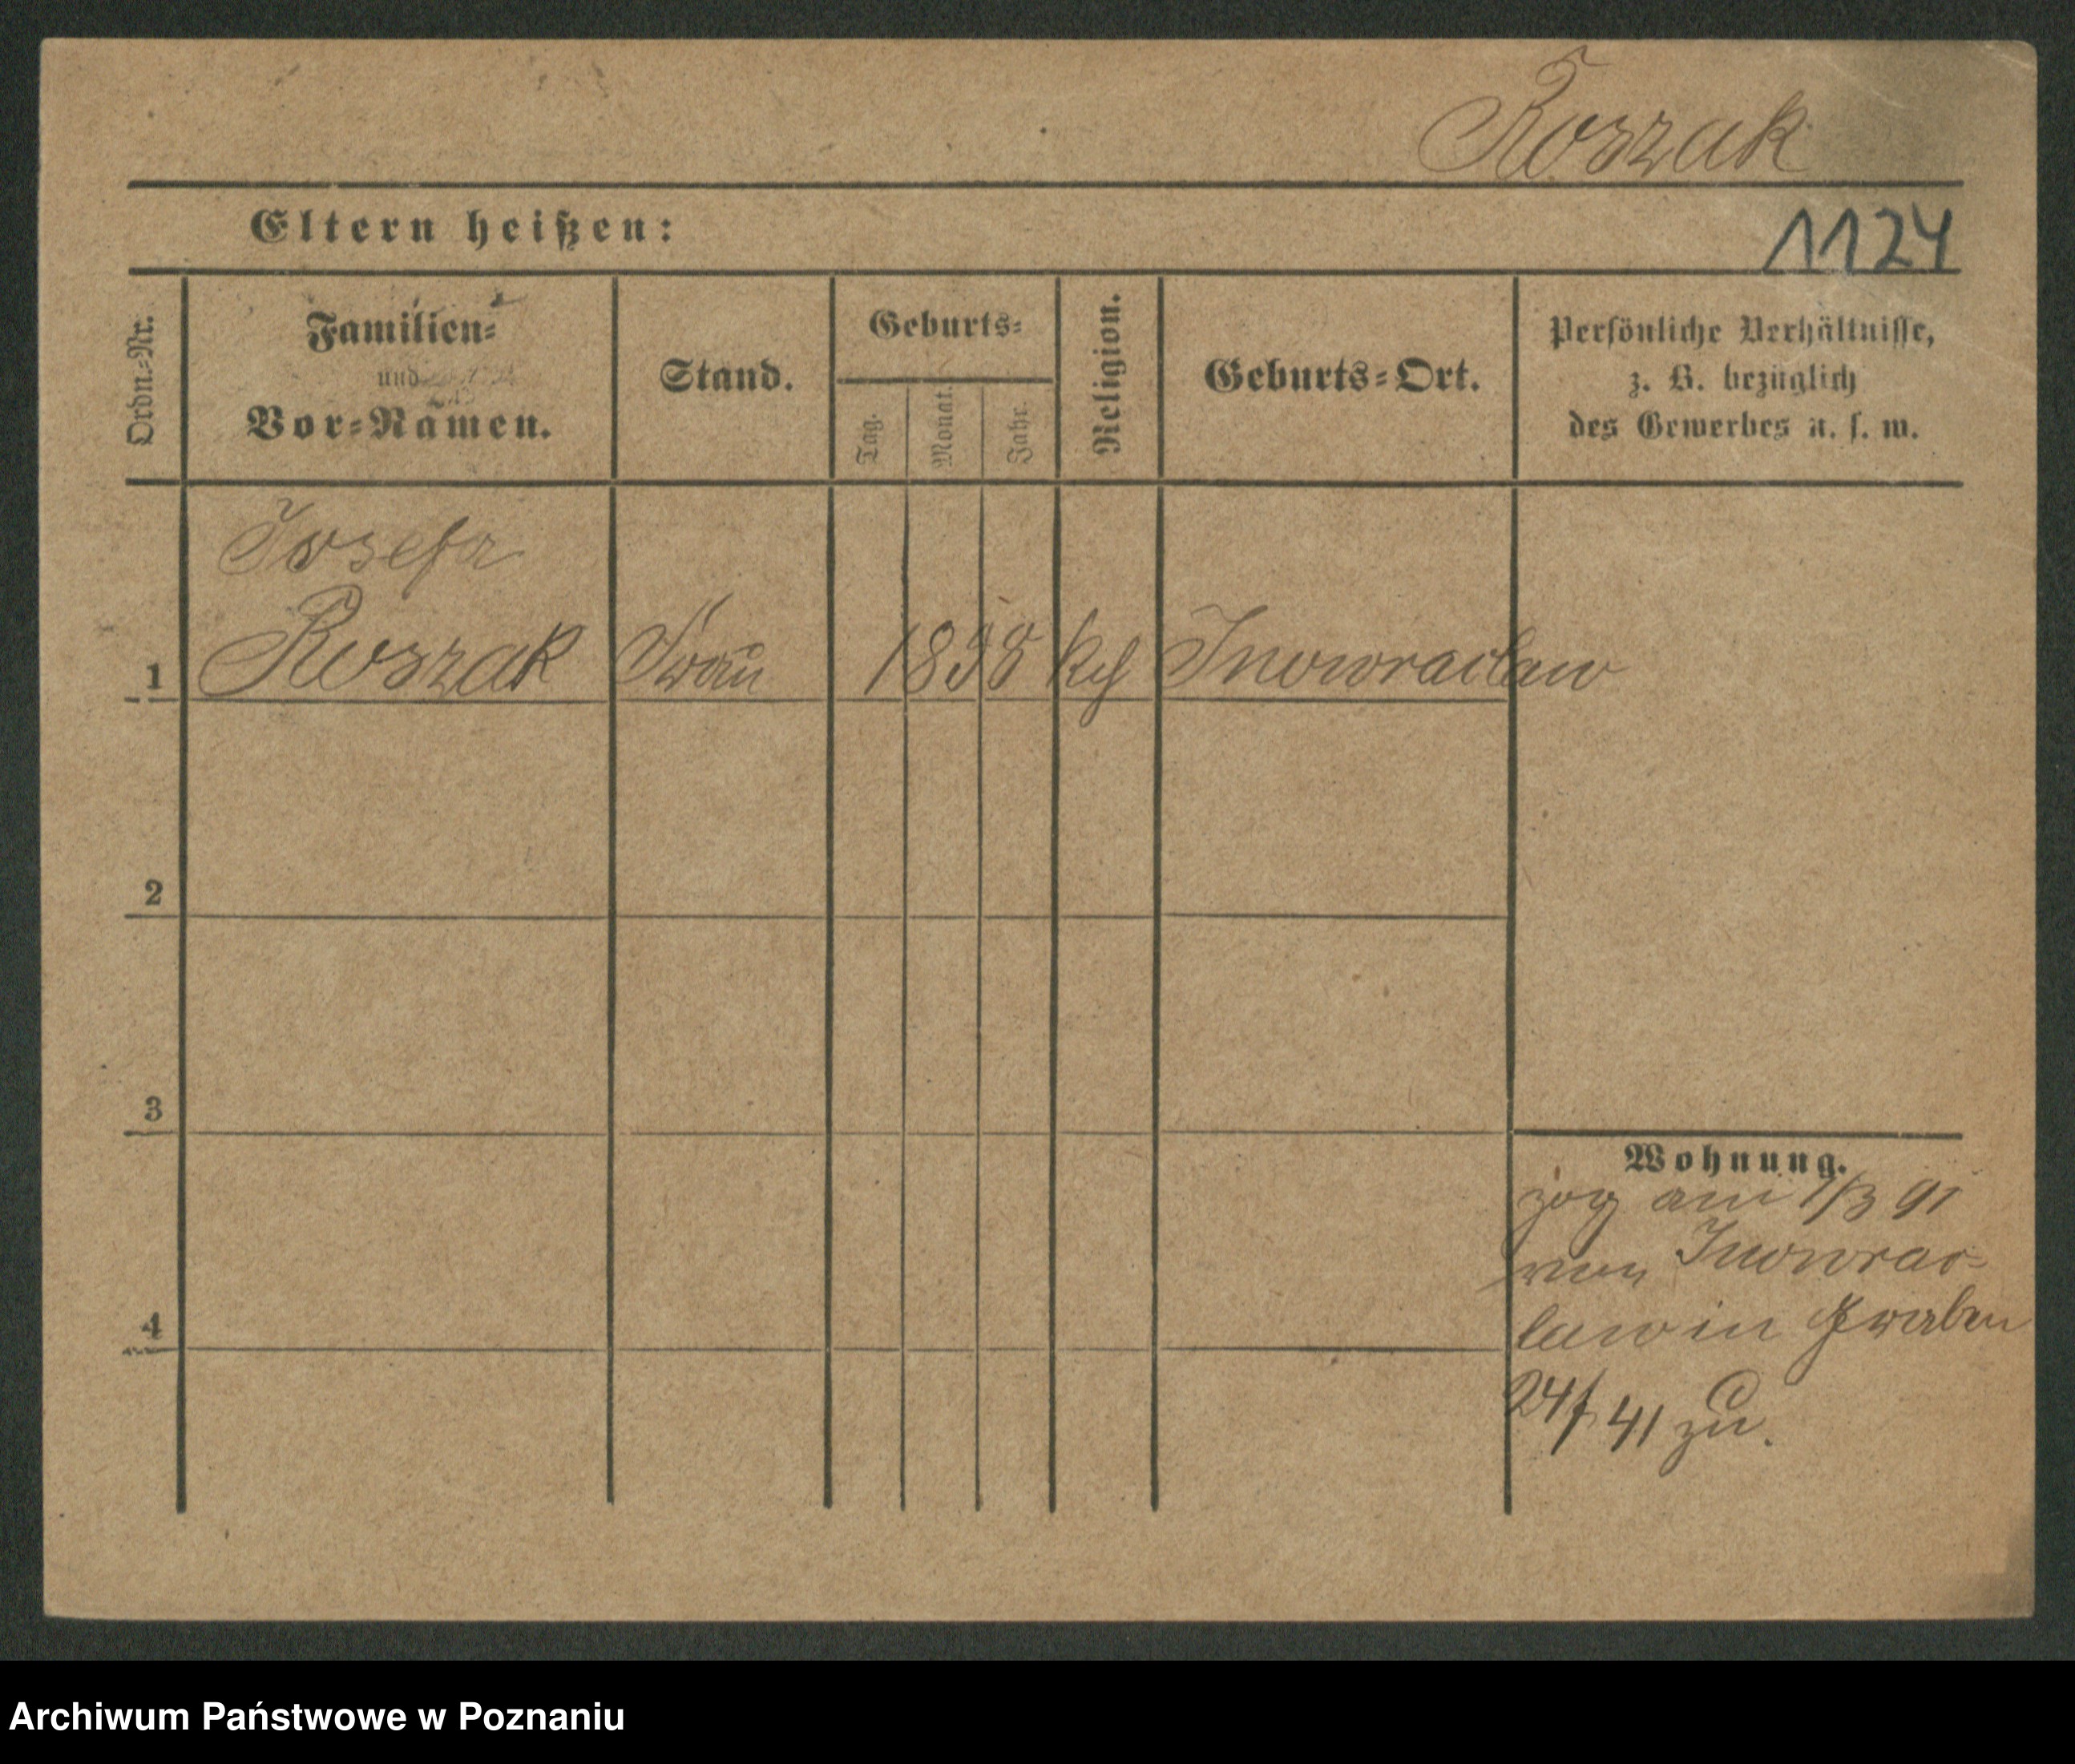 Roszak
Eltern heißen:
1124
Ordn.-Nr.
Familien-
und
Vor-Namen.
Stand.
Geburts-
Tag.
Monat.
Jahr.
Religion.
Geburts-Ort.
Persönliche Verhältnisse,
z. B. bezüglich
des Gewerbes u. s. w.
Josefa
1 Roszak Frau 1858 kth Inowraclaw
2
3
4
Wohnung.
zog am 1/3 91
von Inowrac-
law in
24/ 41 zu.
Archiwum Państwowe w Poznaniu